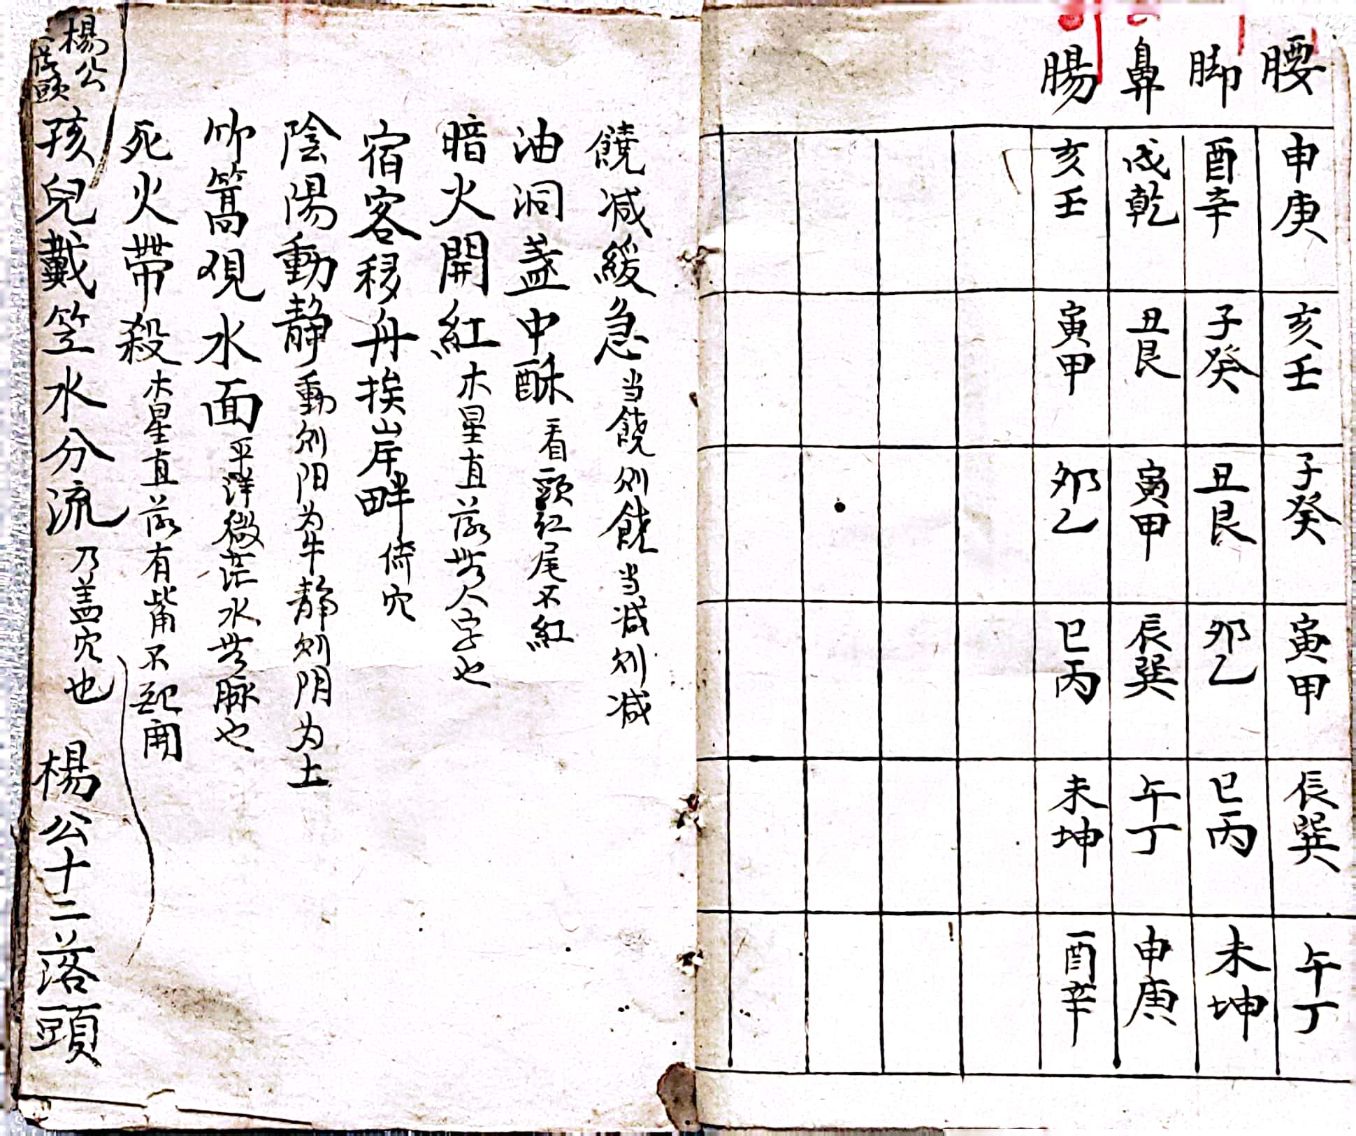 腰 申庚 亥壬 子癸 寅甲 辰巽 午丁
脚 酉辛 子癸 丑艮 夘乙 巳丙 未坤
鼻 戌乾 丑艮 寅甲 辰巽 午丁 申庚
腸 亥壬 寅甲 夘乙 巳丙 未坤 酉辛
饒减緩急当饒则饒当减则减
油洞盏中酥看頭红尾不紅
暗火開紅木星直落無人字也
宿客移舟挨岸畔倚穴
陰陽動静動则阳为牛静则阴为土
篙覌水面平洋微茫水無脉也
死火帶殺木星直落有嘴不起開
孩兒戴笠水分流乃盖穴也 楊公十二落頭
楊公